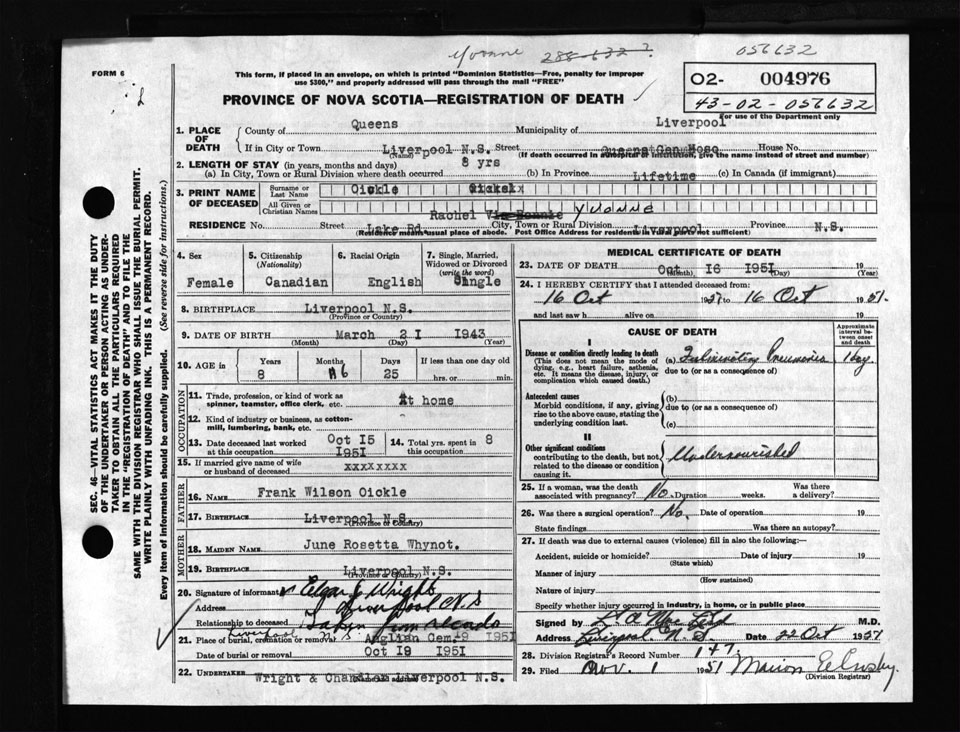 Yvonne 288-632 ? 056632
FORM 6
This form, if placed in an envelope, on which is printed "Dominion Statistics—Free, penalty for improper
use $300," and properly addressed will pass through the mail "FREE"
O2- 004976
43-02-056632
For use of the Department only
PROVINCE OF NOVA SCOTIA—REGISTRATION OF DEATH
1. PLACE OF DEATH County of Queens Municipality of Liverpool
If in City or Town Liverpool N.S. Street House No.
(Name) (If death occurred in a hospital or institution, give the name instead of street and number)
2. LENGTH OF STAY (in years, months and days) 8 yrs
(a) In City, Town or Rural Division where death occurred (b) In Province Lifetime (c) In Canada (if immigrant)
3. PRINT NAME OF DECEASED Surname or Last Name Oickle
All Given or Christian Names Rachel YVONNE
RESIDENCE No. Street Lake Rd. City, Town or Rural Division Liverpool Province N.S.
(Residence means usual place of abode. Post Office Address for residents in rural parts not sufficient)
4. Sex Female
5. Citizenship (Nationality) Canadian
6. Racial Origin English
7. Single, Married, Widowed or Divorced (write the word) Single
8. BIRTHPLACE Liverpool N.S.
(Province or Country)
9. DATE OF BIRTH March 2I 1943
(Month) (Day) (Year)
10. AGE in Years 8 Months 6 Days 25 If less than one day old hrs. or min.
OCCUPATION
11. Trade, profession, or kind of work as spinner, teamster, office clerk, etc. At home
12. Kind of industry or business, as cotton-mill, lumbering, bank, etc.
13. Date deceased last worked at this occupation Oct I5 I95I
14. Total yrs. spent in this occupation 8
15. If married give name of wife or husband of deceased xxxxxxxx
FATHER
16. NAME Frank Wilson Oickle
17. BIRTHPLACE Liverpool N.S.
(Province or Country)
MOTHER
18. MAIDEN NAME June Rosetta Whynot.
19. BIRTHPLACE Liverpool N.S.
(Province or Country)
20. Signature of informant Edgar Wright
Address Liverpool N.S
Relationship to deceased Taken from records
21. Place of burial, cremation or removal Liverpool N.S Anglian Cem. I95I
Date of burial or removal Oct I9 I95I
22. UNDERTAKER Wright & Chandler Liverpool N.S.
MEDICAL CERTIFICATE OF DEATH
23. DATE OF DEATH Oct I6 I95I 19
(Month) (Day) (Year)
24. I HEREBY CERTIFY that I attended deceased from:
16 Oct 1951 to 16 Oct 1951.
and last saw h alive on 19
CAUSE OF DEATH
Approximate interval between onset and death
I
Disease or condition directly leading to death
(This does not mean the mode of dying, e.g., heart failure, asthenia, etc. It means the disease, injury, or complication which caused death.)
(a) Fulminating Pneumonia 1 day.
due to (or as a consequence of)
Antecedent causes
Morbid conditions, if any, giving rise to the above cause, stating the underlying condition last.
(b)
due to (or as a consequence of)
(c)
II
Other significant conditions
contributing to the death, but not related to the disease or condition causing it.
Undernourished
25. If a woman, was the death associated with pregnancy? No. Duration weeks. Was there a delivery?
26. Was there a surgical operation? No. Date of operation 19
State findings Was there an autopsy?
27. If death was due to external causes (violence) fill in also the following:—
Accident, suicide or homicide? Date of injury 19
(State which)
Manner of injury
(How sustained)
Nature of injury
Specify whether injury occurred in industry, in home, or in public place
Signed by M.D.
Address Liverpool N. S. Date 22 Oct 1951
28. Division Registrar's Record Number 147.
29. Filed Nov. 1 1951 Marion
(Division Registrar)
SEC. 46—VITAL STATISTICS ACT MAKES IT THE DUTY
OF THE UNDERTAKER OR PERSON ACTING AS UNDER-
TAKER TO OBTAIN ALL THE PARTICULARS REQUIRED
IN THE "REGISTRATION OF DEATH" AND TO FILE THE
SAME WITH THE DIVISION REGISTRAR WHO SHALL ISSUE THE BURIAL PERMIT.
WRITE PLAINLY WITH UNFADING INK. THIS IS A PERMANENT RECORD.
Every item of information should be carefully supplied. (See reverse side for instructions.)